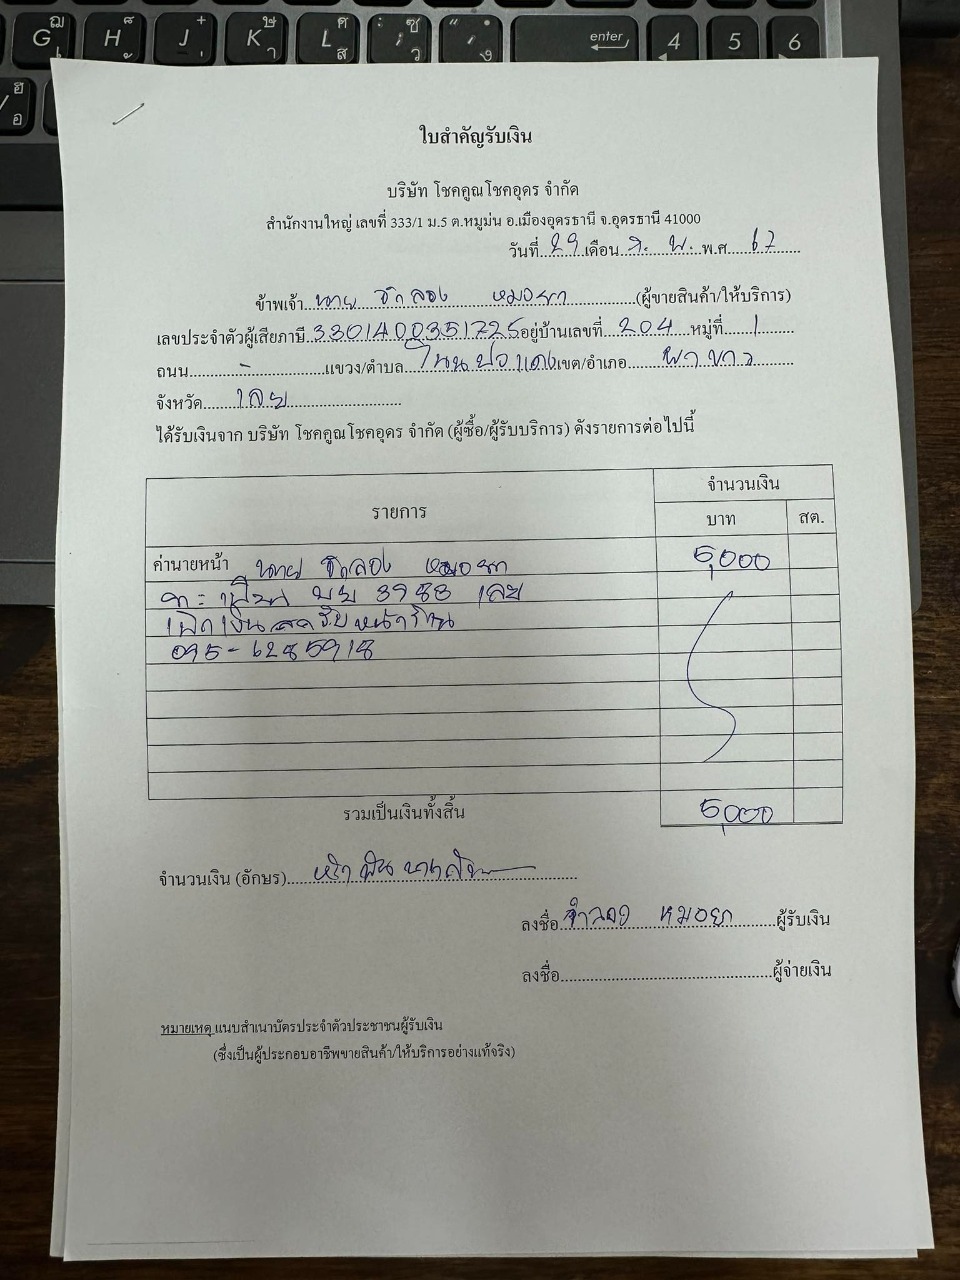 ใบสำคัญรับเงิน
บริษัท โชคคูณโชคอุดร จำกัด
สำนักงานใหญ่ เลขที่ 333/1 ม.5 ต.หมูม่น อ.เมืองอุดรธานี จ.อุดรธานี 41000
วันที่ 29 เดือน ก. พ. พ.ศ. 67
ข้าพเจ้า นาย จำลอง หมอยา (ผู้ขายสินค้า/ให้บริการ)
เลขประจำตัวผู้เสียภาษี 3301400351725 อยู่บ้านเลขที่ 204 หมู่ที่ 1
ถนน - แขวง/ตำบล โนนปอแดง เขต/อำเภอ ผาขาว
จังหวัด เลย
ได้รับเงินจาก บริษัท โชคคูณโชคอุดร จำกัด (ผู้ซื้อ/ผู้รับบริการ) ดังรายการต่อไปนี้
รายการ จำนวนเงิน
บาท สต.
ค่านายหน้า นาย จำลอง หมอยา 5,000
ทะเบียน บบ 3983 เลย
เบิกเงินสดรับหน้าร้าน
095-6285918
รวมเป็นเงินทั้งสิ้น 5,000
จำนวนเงิน (อักษร) ห้าพันบาทถ้วน
ลงชื่อ จำลอง หมอยา ผู้รับเงิน
ลงชื่อ ผู้จ่ายเงิน
หมายเหตุ แนบสำเนาบัตรประจำตัวประชาชนผู้รับเงิน
(ซึ่งเป็นผู้ประกอบอาชีพขายสินค้า/ให้บริการอย่างแท้จริง)